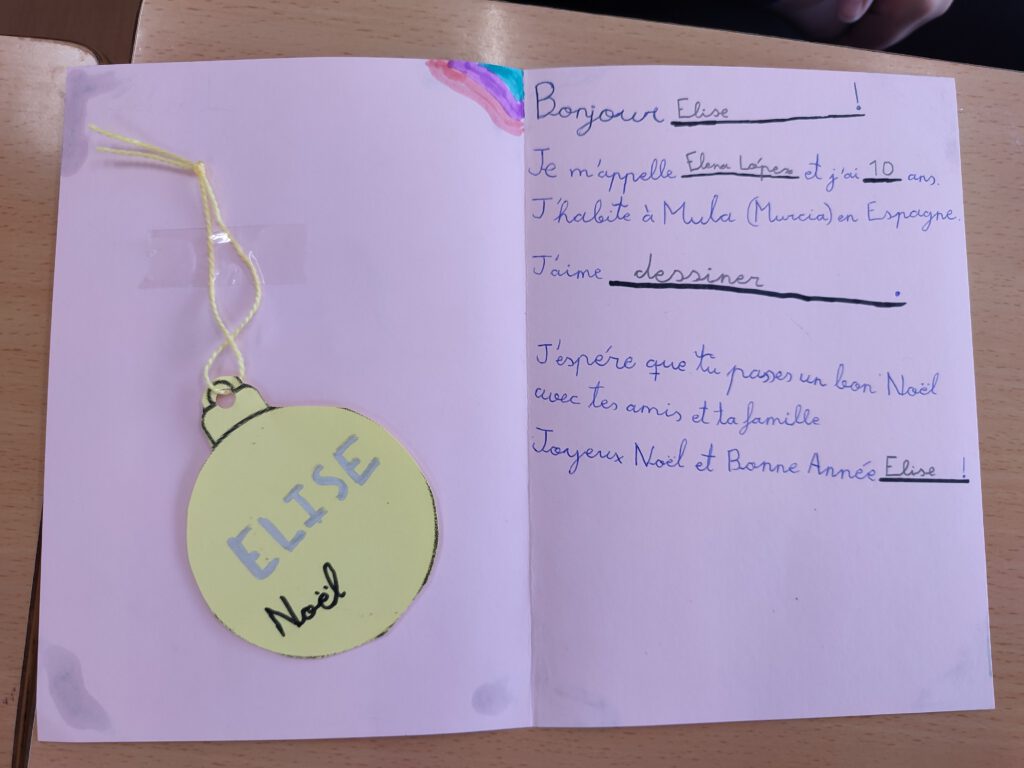 ELISE
Noël
Bonjour Elise !
Je m'appelle Elena López et j'ai 10 ans.
J'habite à Mula (Murcia) en Espagne.
J'aime dessiner.
J'espére que tu passes un bon Noël
avec tes amis et ta famille
Joyeux Noël et Bonne Année Elise !